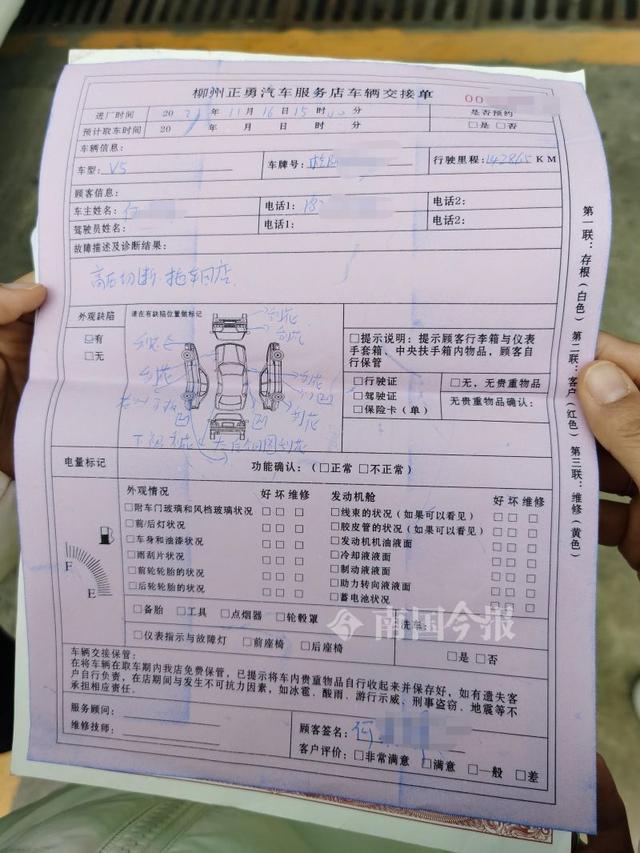 柳州正勇汽车服务店车辆交接单
00
进厂时间 20 21 年 11 月 16 日 15 时 分 是否预约
预计取车时间 20 年 月 日 时 分 □是 □否
车辆信息:
车型: V5 车牌号: 桂 行驶里程: 142865 KM
顾客信息:
车主姓名: 何 电话1: 18 电话2:
驾驶员姓名: 电话1: 电话2:
故障描述及诊断结果:
高启切断 拖车回店
外观缺陷 请在有缺陷位置做标记
□有
□无
划花
划花
划花
划花
凹
划花
凹
□提示说明: 提示顾客行李箱与仪表
手套箱、中央扶手箱内物品, 顾客自
行保管
□行驶证 □无, 无贵重物品
□驾驶证 无贵重物品确认:
□保险卡(单)
电量标记 功能确认: (□正常 □不正常)
F
E
外观情况 好 坏 维修
□附车门玻璃和风档玻璃状况
□前/后灯状况
□车身和油漆状况
□雨刮片状况
□前轮轮胎的状况
□后轮轮胎的状况
发动机舱 好 坏 维修
□线束的状况(如果可以看见)
□胶皮管的状况(如果可以看见)
□发动机机油液面
□冷却液液面
□制动液面
□助力转向液液面
□蓄电池状况
□备胎 □工具 □点烟器 □轮毂罩
□仪表指示与故障灯 □前座椅 □后座椅
洗车:
□是 □否
南国今报
车辆交接保管:
在将车辆在取车期内我店免费保管, 已提示将车内贵重物品自行收起来并保存好, 如有遗失客
户自行负责, 在店期间与发生不可抗力因素, 如冰雹、酸雨、游行示威、刑事盗窃、地震等不
承担相应责任。
服务顾问:
维修技师:
顾客签名: 何
客户评价: □非常满意 □满意 □一般 □差
第一联: 存根(白色) 第二联: 客户(红色) 第三联: 维修(黄色)